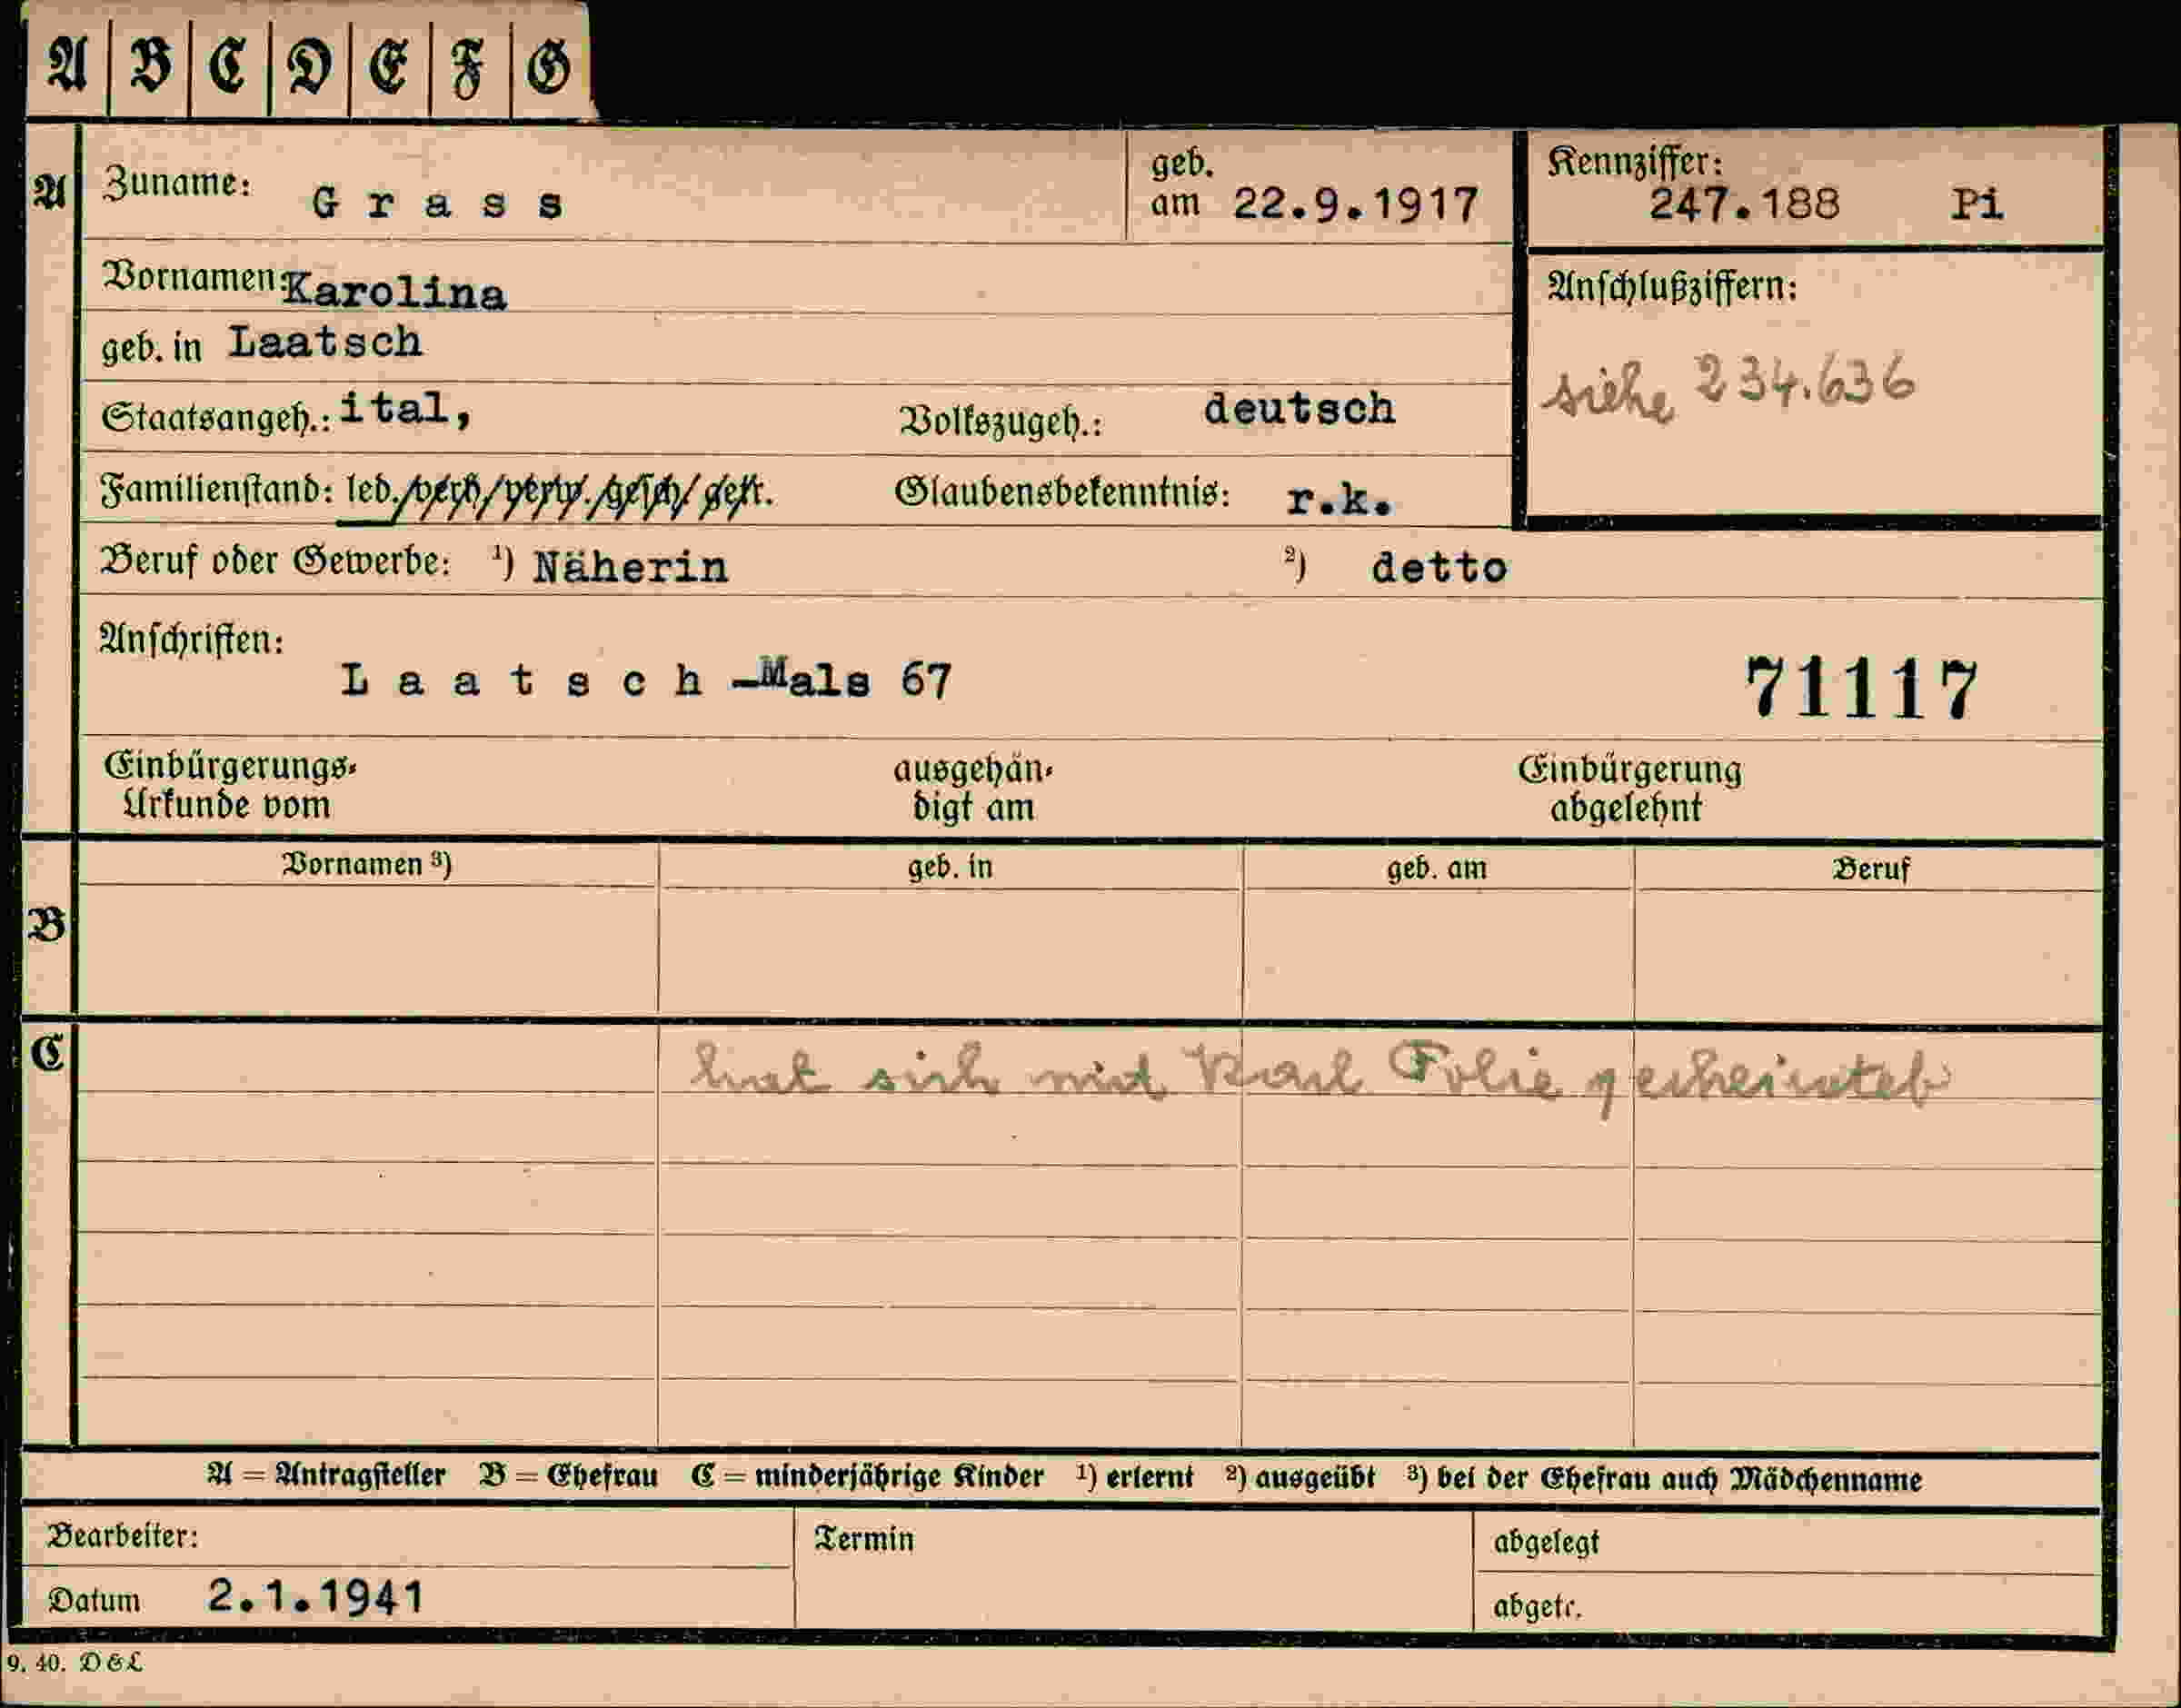 A B C D E F G
A
Zuname: Grass
geb. am 22.9.1917
Kennziffer: 247.188 Pi
Vornamen: Karolina
Anschlußziffern:
geb. in Laatsch
siehe 234.636
Staatsangeh.: ital, Volkszugeh.: deutsch
Familienstand: led./verh/verw./gesch/getr. Glaubensbekenntnis: r.k.
Beruf oder Gewerbe: ¹) Näherin ²) detto
Anschriften:
Laatsch-Mals 67
71117
Einbürgerungs-
Urkunde vom
ausgehän-
digt am
Einbürgerung
abgelehnt
B
Vornamen ³) geb. in geb. am Beruf
C
hat sich mit Karl Folie
A = Antragsteller B = Ehefrau C = minderjährige Kinder ¹) erlernt ²) ausgeübt ³) bei der Ehefrau auch Mädchenname
Bearbeiter: Termin abgelegt
Datum 2.1.1941 abgetr.
9. 40. D&L